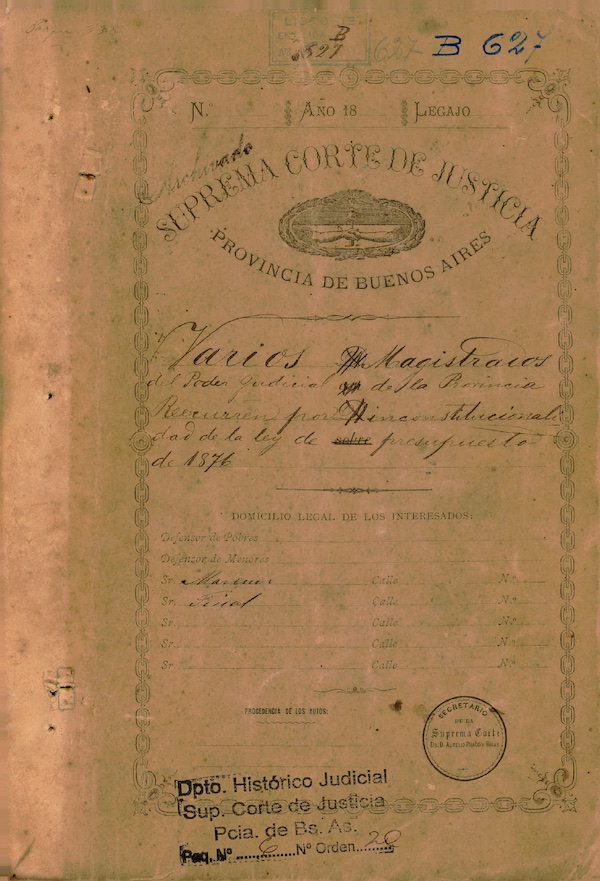 B
527
627 B 627
N.º Año 18 Legajo
Archivado
SUPREMA CORTE DE JUSTICIA
PROVINCIA DE BUENOS AIRES
Varios Magistrados
del Poder Judicial de la Provincia
Recurren por inconstitucionali
dad de la ley de sobre presupuesto
de 1876
DOMICILIO LEGAL DE LOS INTERESADOS:
Defensor de Pobres
Defensor de Menores
Sr. Calle N.º
Sr. Fiscal Calle N.º
Sr. Calle N.º
Sr. Calle N.º
Sr. Calle N.º
PROCEDENCIA DE LOS AUTOS:
SECRETARIO
DE LA
Suprema Corte
Dpto. Histórico Judicial
Sup. Corte de Justicia
Pcia. de Bs. As.
Paq. Nº 6 Nº Orden 20